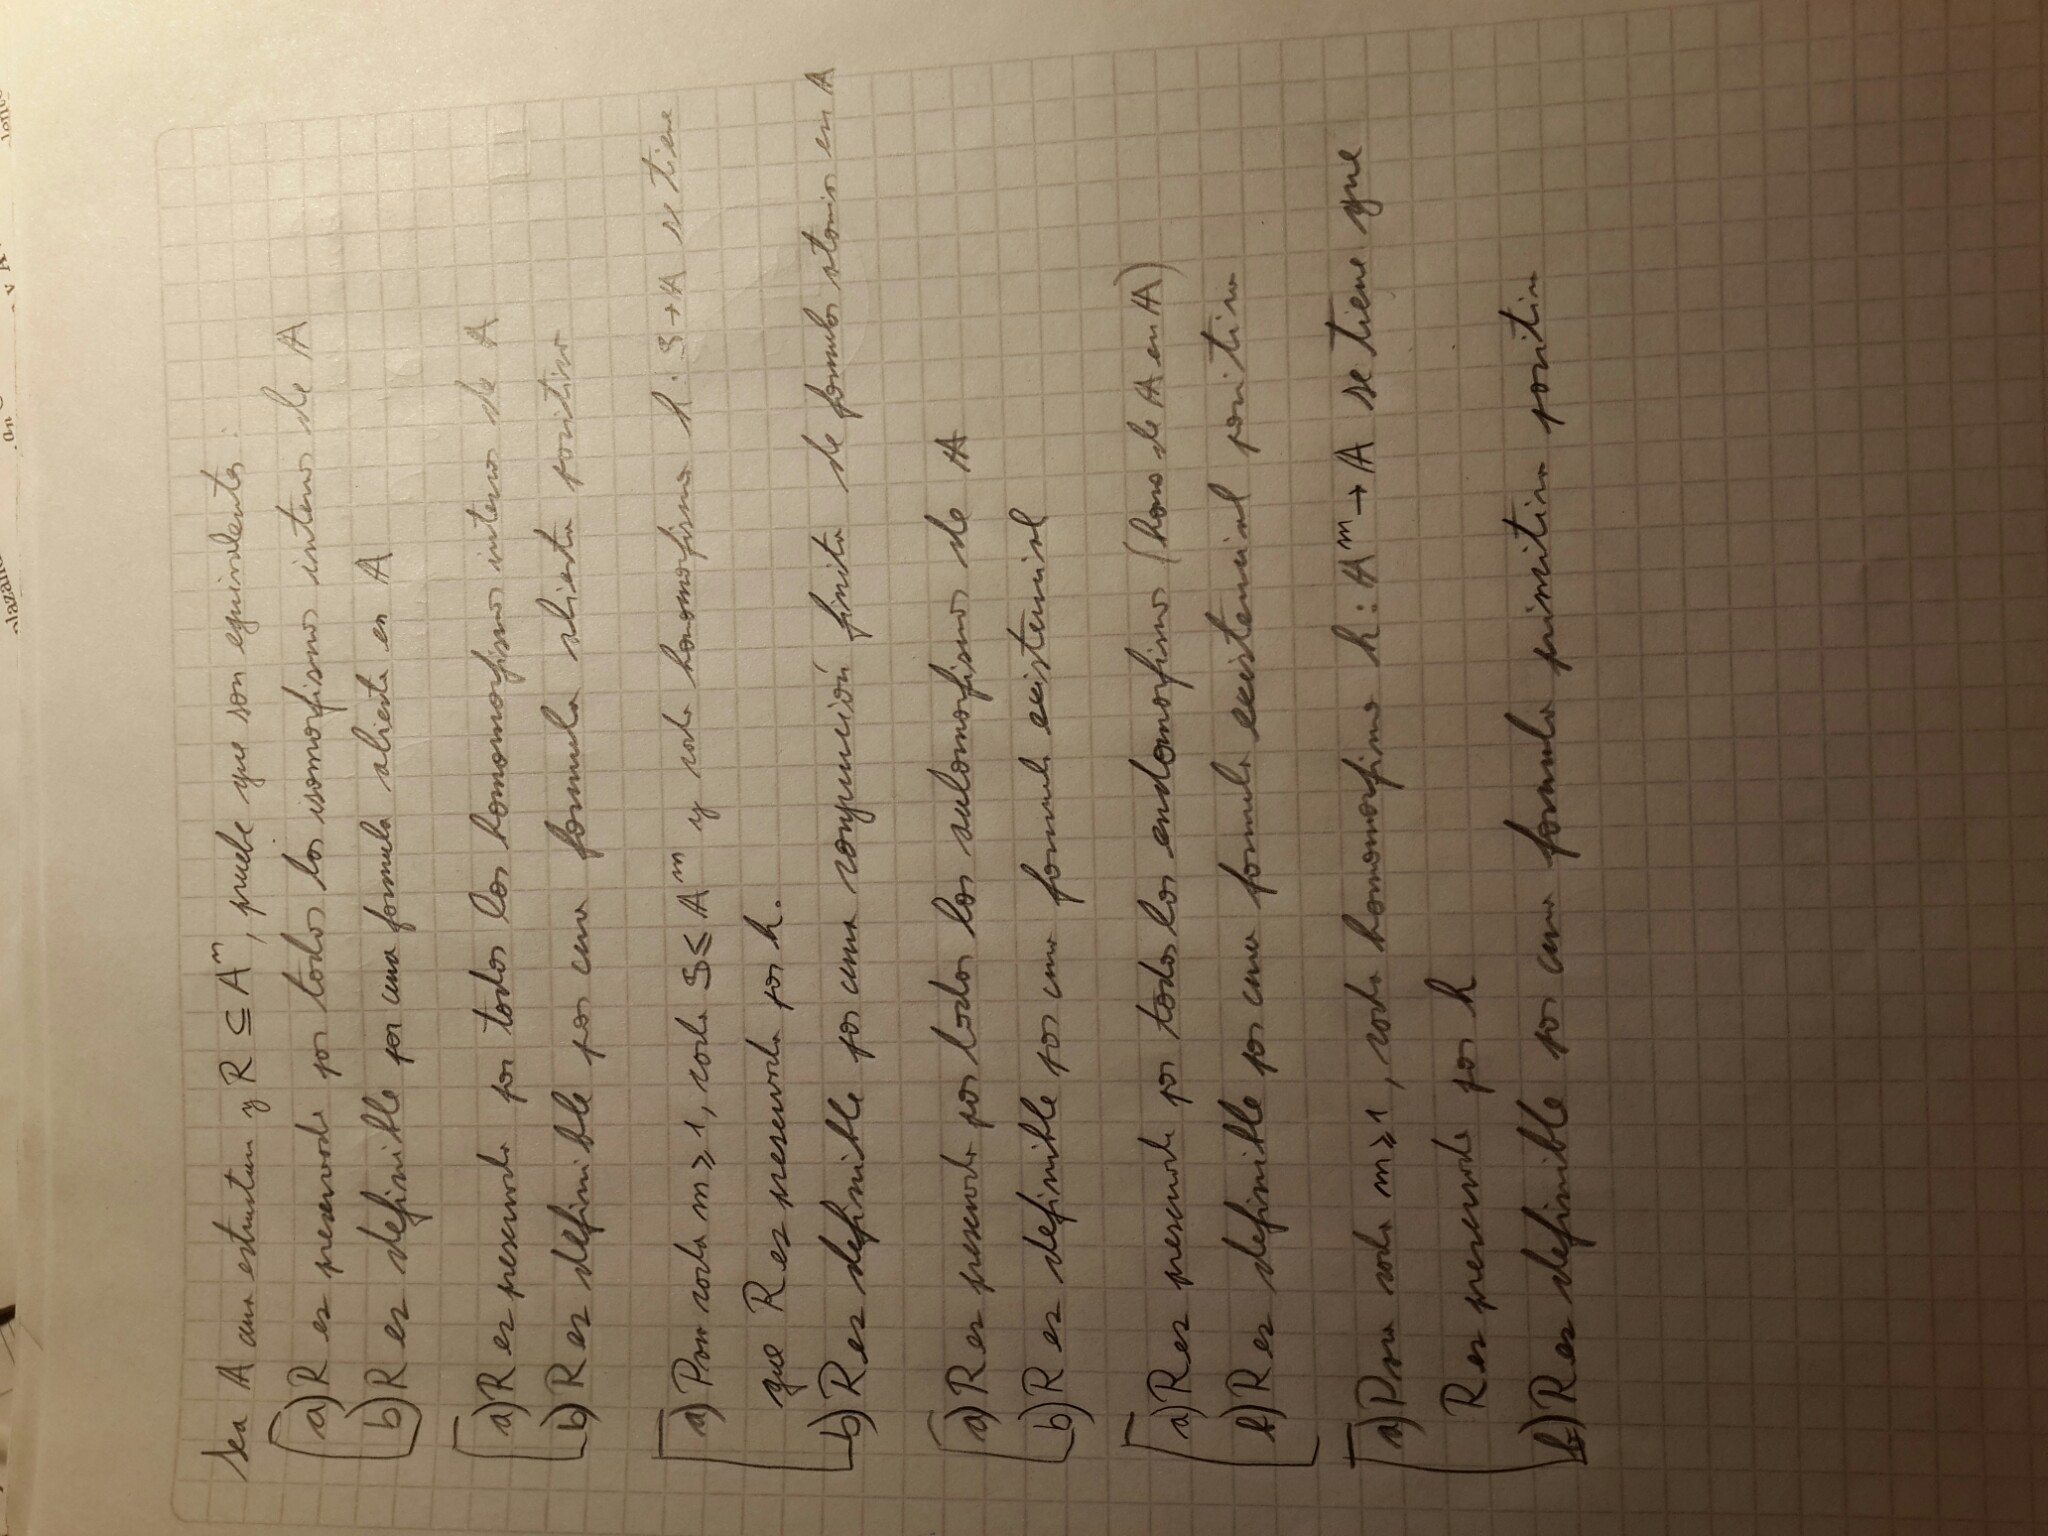 plazan
y A
Sea 𝔸 una estructura y R ⊆ Aⁿ, pruebe que son equivalentes:
a) R es preservada por todos los isomorfismos internos de 𝔸
b) R es definible por una formula abierta en 𝔸
a) R es preservada por todos los homomorfismos internos de 𝔸
b) R es definible por una formula abierta positiva
a) Para cada m ≥ 1, cada 𝕊 ≤ 𝔸ᵐ y cada homomorfismo h: 𝕊 → 𝔸 se tiene
que R es preservada por h.
b) R es definible por una conjunción finita de formulas atomicas en 𝔸
a) R es preservada por todos los automorfismos de 𝔸
b) R es definible por una formula existencial
a) R es preservada por todos los endomorfismos (homo de 𝔸 en 𝔸)
b) R es definible por una formula existencial positiva
a) Para cada m ≥ 1, cada homomorfismo h: 𝔸ᵐ → 𝔸 se tiene que
R es preservada por h
b) R es definible por una formula primitiva positiva